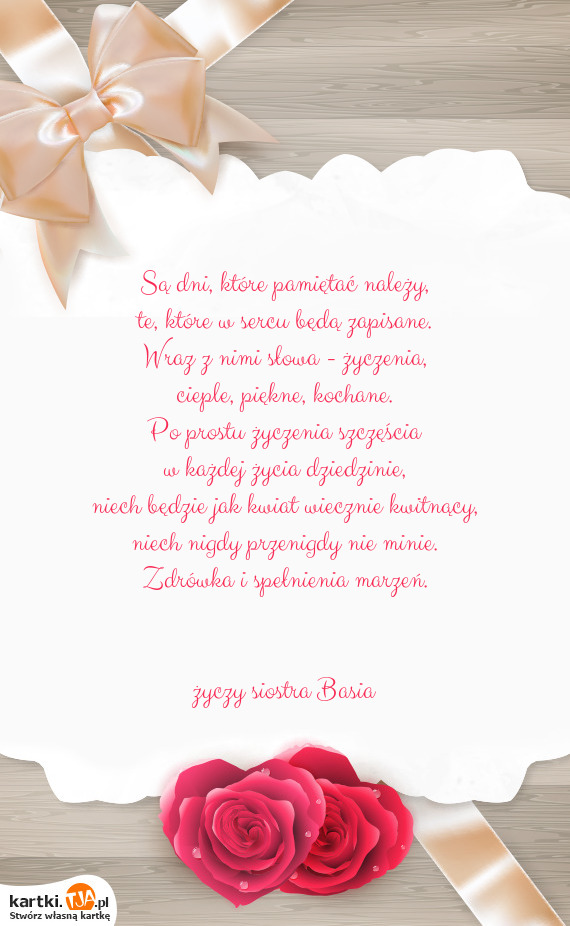 Są dni, które pamiętać należy,
te, które w sercu będą zapisane.
Wraz z nimi słowa - życzenia,
ciepłe, piękne, kochane.
Po prostu życzenia szczęścia
w każdej życia dziedzinie,
niech będzie jak kwiat wiecznie kwitnący,
niech nigdy przenigdy nie minie.
Zdrówka i spełnienia marzeń.
życzy siostra Basia
kartki.TJA.pl
Stwórz własną kartkę